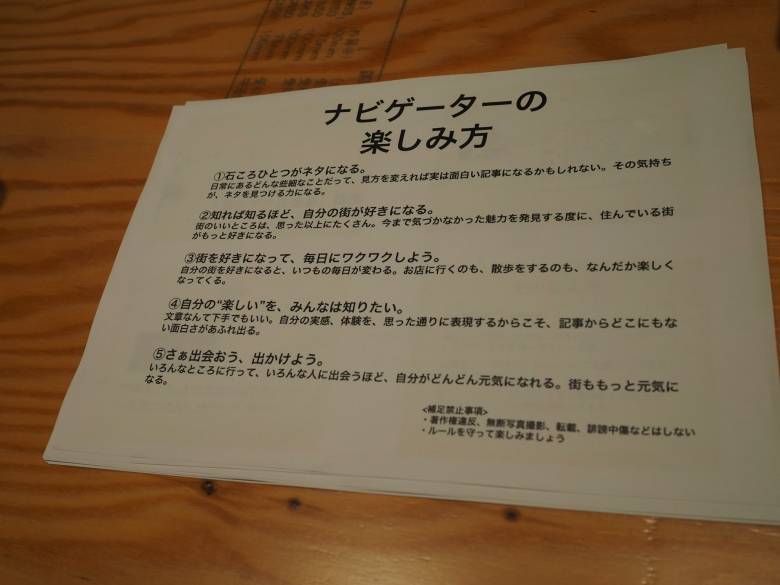 ナビゲーターの
楽しみ方
①石ころひとつがネタになる。
日常にあるどんな些細なことだって、見方を変えれば実は面白い記事になるかもしれない。その気持ち
が、ネタを見つける力になる。
②知れば知るほど、自分の街が好きになる。
街のいいところは、思った以上にたくさん。今まで気づかなかった魅力を発見する度に、住んでいる街
がもっと好きになる。
③街を好きになって、毎日にワクワクしよう。
自分の街を好きになると、いつもの毎日が変わる。お店に行くのも、散歩をするのも、なんだか楽しく
なってくる。
④自分の“楽しい”を、みんなは知りたい。
文章なんて下手でもいい。自分の実感、体験を、思った通りに表現するからこそ、記事からどこにもな
い面白さがあふれ出る。
⑤さぁ出会おう、出かけよう。
いろんなところに行って、いろんな人に出会うほど、自分がどんどん元気になれる。街ももっと元気に
なる。
<補足禁止事項>
・著作権違反、無断写真撮影、転載、誹謗中傷などはしない
・ルールを守って楽しみましょう